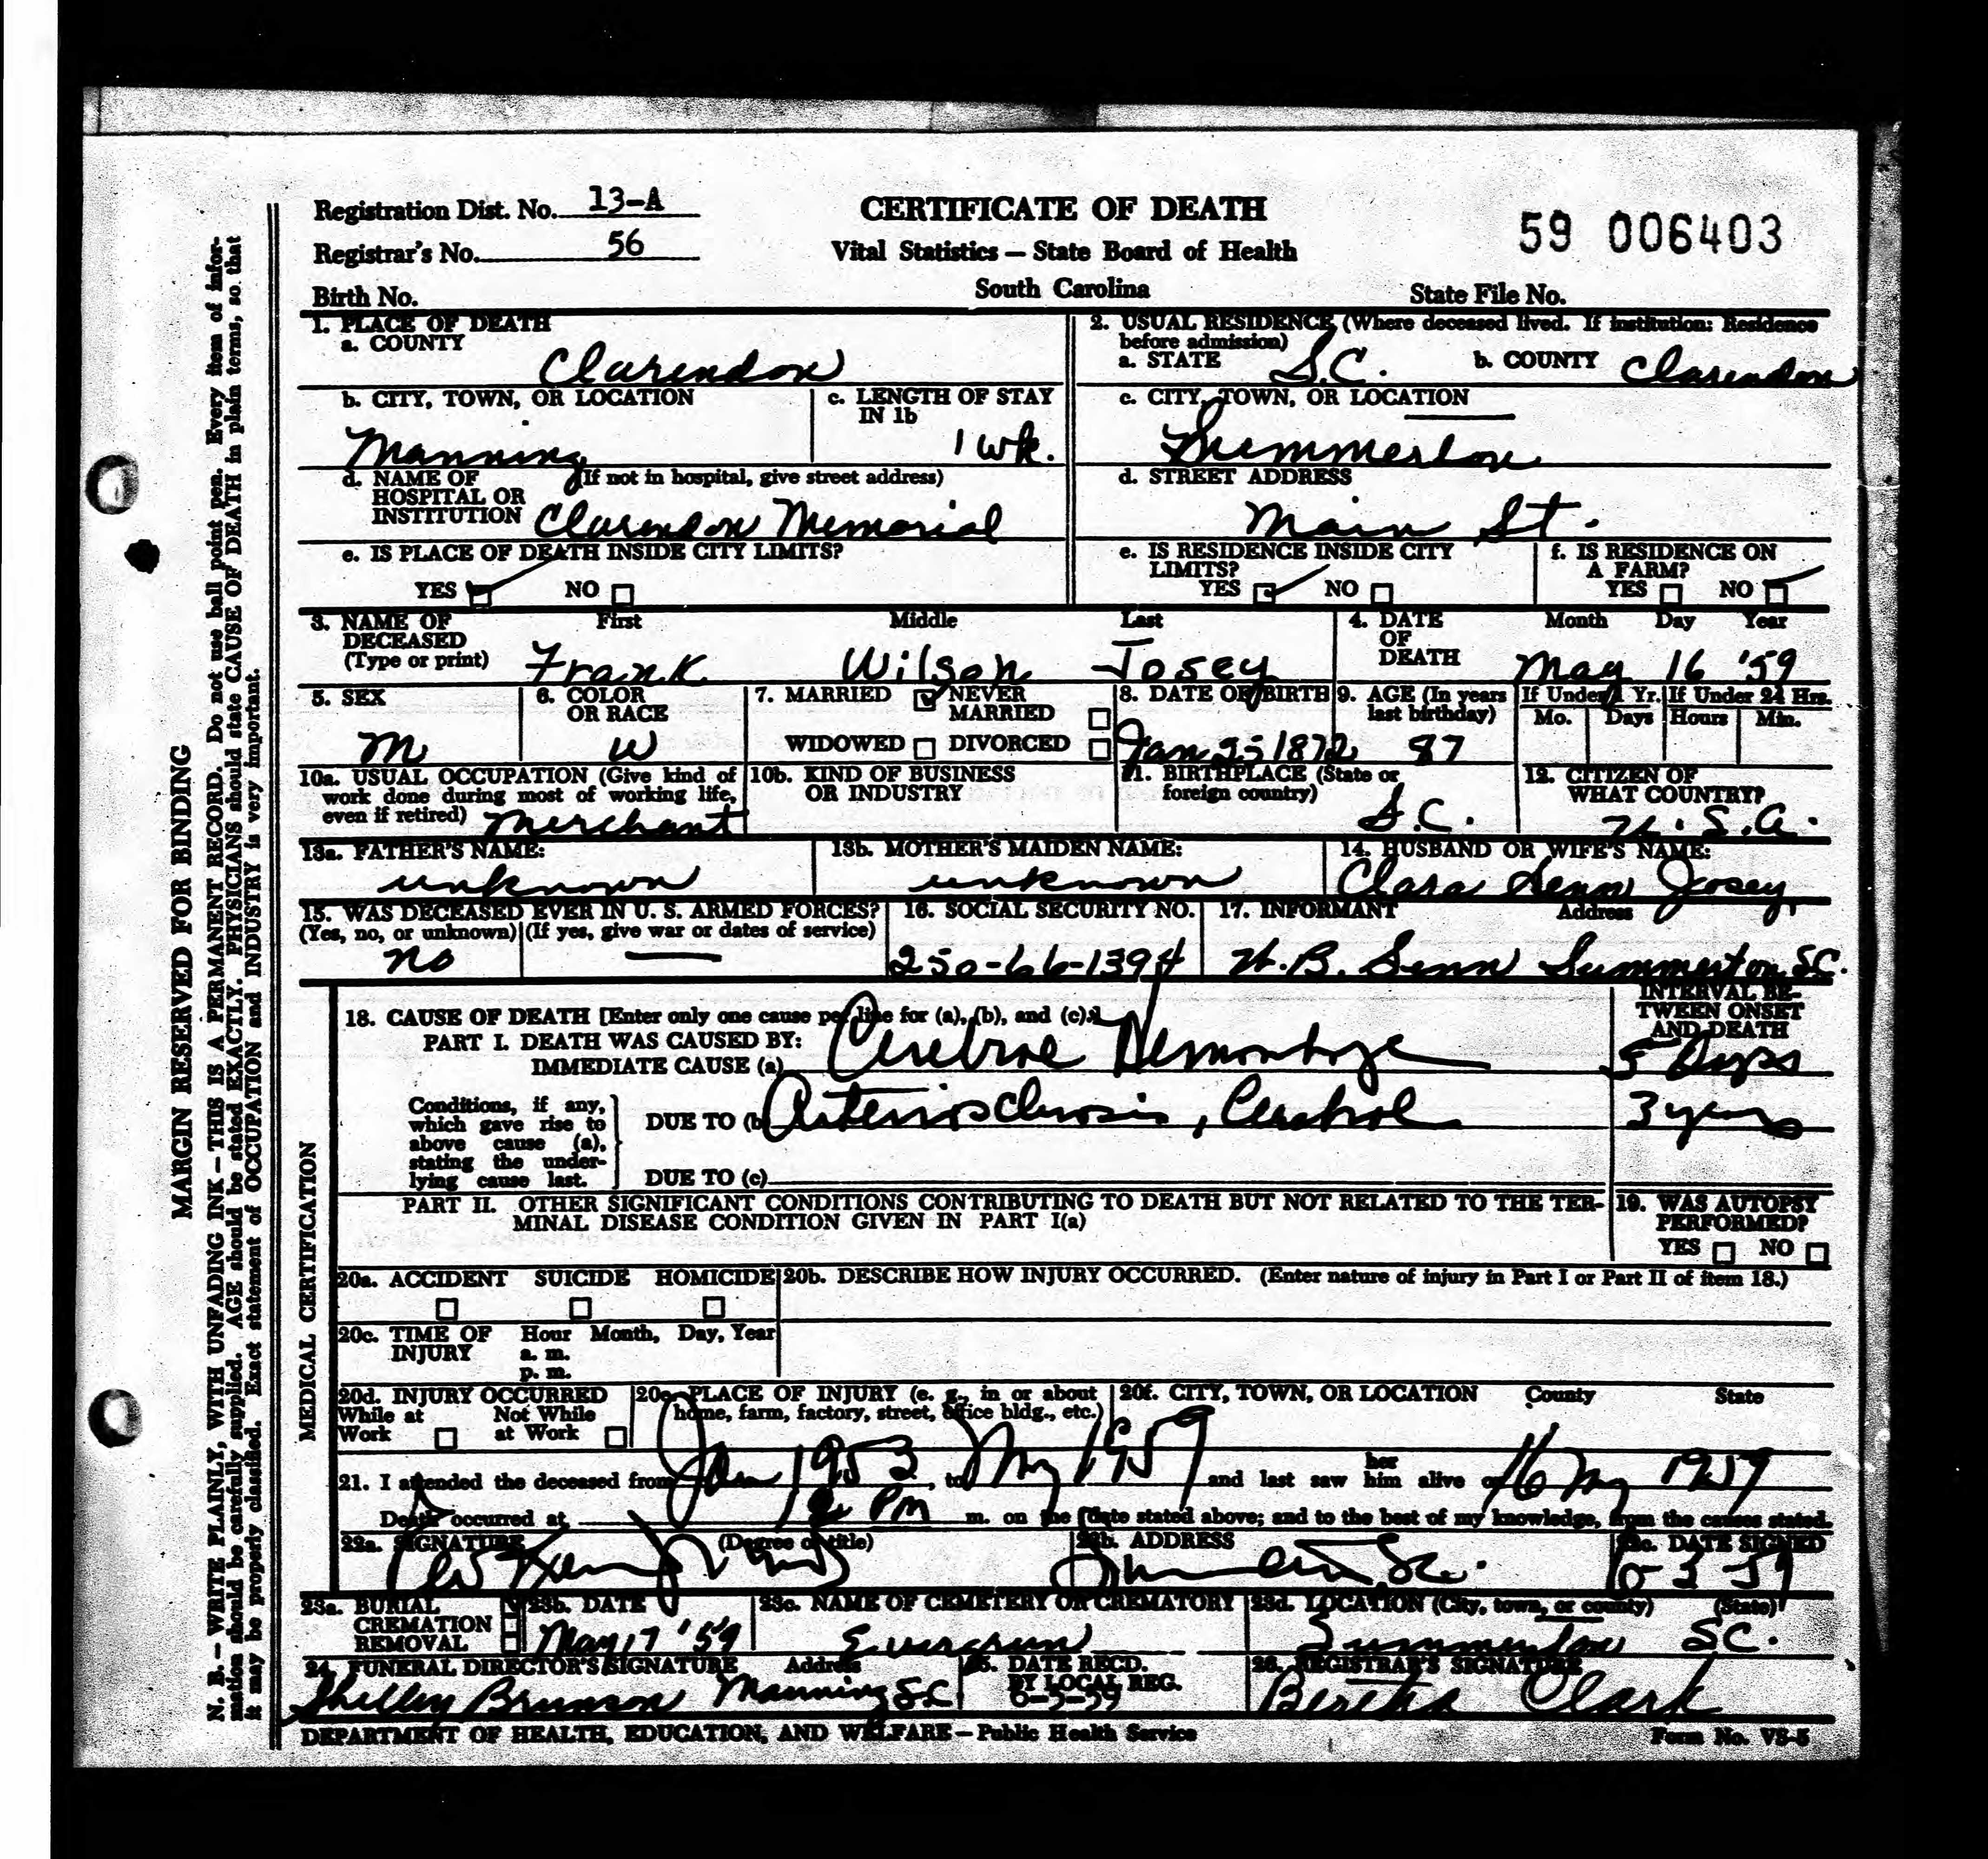 Registration Dist. No. 13-A
CERTIFICATE OF DEATH
59 006403
Registrar's No. 56
Vital Statistics — State Board of Health
South Carolina
Birth No.
State File No.
1. PLACE OF DEATH
a. COUNTY
Clarendon
2. USUAL RESIDENCE (Where deceased lived. If institution: Residence
before admission)
a. STATE S.C. b. COUNTY Clarendon
b. CITY, TOWN, OR LOCATION
Manning
c. LENGTH OF STAY
IN 1b
1 wk.
c. CITY, TOWN, OR LOCATION
Summerton
d. NAME OF (If not in hospital, give street address)
HOSPITAL OR
INSTITUTION Clarendon Memorial
d. STREET ADDRESS
Main St.
e. IS PLACE OF DEATH INSIDE CITY LIMITS?
YES NO
e. IS RESIDENCE INSIDE CITY
LIMITS?
YES NO
f. IS RESIDENCE ON
A FARM?
YES NO
3. NAME OF
DECEASED
(Type or print)
First Middle Last
Frank Wilson Josey
4. DATE
OF
DEATH
Month Day Year
May 16 '59
5. SEX
M
6. COLOR
OR RACE
W
7. MARRIED NEVER
MARRIED
WIDOWED DIVORCED
8. DATE OF BIRTH
Jan 25 1872
9. AGE (In years
last birthday)
87
If Under 1 Yr. If Under 24 Hrs.
Mo. Days Hours Min.
10a. USUAL OCCUPATION (Give kind of
work done during most of working life,
even if retired) Merchant
10b. KIND OF BUSINESS
OR INDUSTRY
11. BIRTHPLACE (State or
foreign country)
S.C.
12. CITIZEN OF
WHAT COUNTRY?
U.S.A.
13a. FATHER'S NAME:
unknown
13b. MOTHER'S MAIDEN NAME:
unknown
14. HUSBAND OR WIFE'S NAME:
Clara Senn Josey
15. WAS DECEASED EVER IN U. S. ARMED FORCES?
(Yes, no, or unknown) (If yes, give war or dates of service)
no —
16. SOCIAL SECURITY NO.
250-66-1394
17. INFORMANT Address
H.B. Senn Summerton SC.
18. CAUSE OF DEATH [Enter only one cause per line for (a), (b), and (c).]
PART I. DEATH WAS CAUSED BY:
IMMEDIATE CAUSE (a) Cerebral Hemorrhage
INTERVAL BE-
TWEEN ONSET
AND DEATH
5 Days
Conditions, if any,
which gave rise to
above cause (a),
stating the under-
lying cause last.
DUE TO (b) Arteriosclerosis, Cerebral
3 years
DUE TO (c)
PART II. OTHER SIGNIFICANT CONDITIONS CONTRIBUTING TO DEATH BUT NOT RELATED TO THE TER-
MINAL DISEASE CONDITION GIVEN IN PART I(a)
19. WAS AUTOPSY
PERFORMED?
YES NO
20a. ACCIDENT SUICIDE HOMICIDE
20b. DESCRIBE HOW INJURY OCCURRED. (Enter nature of injury in Part I or Part II of item 18.)
20c. TIME OF
INJURY
Hour Month, Day, Year
a. m.
p. m.
20d. INJURY OCCURRED
While at Not While
Work at Work
20e. PLACE OF INJURY (e. g., in or about
home, farm, factory, street, office bldg., etc.)
20f. CITY, TOWN, OR LOCATION County State
21. I attended the deceased from Jan 1953, to May 1959 and last saw her him alive on 16 May 1959
Death occurred at PM m. on the date stated above; and to the best of my knowledge, from the causes stated.
22a. SIGNATURE (Degree or title)
22b. ADDRESS
Summerton S.C.
22c. DATE SIGNED
23a. BURIAL
CREMATION
REMOVAL
23b. DATE
May 17 '59
23c. NAME OF CEMETERY OR CREMATORY
Evergreen
23d. LOCATION (City, town, or county) (State)
Summerton SC.
24. FUNERAL DIRECTOR'S SIGNATURE Address
Shelley Brunson Manning SC
25. DATE RECD.
BY LOCAL REG.
26. REGISTRAR'S SIGNATURE
Bertha Clark
DEPARTMENT OF HEALTH, EDUCATION, AND WELFARE — Public Health Service
Form No. VS-5
MEDICAL CERTIFICATION
MARGIN RESERVED FOR BINDING
N. B. — WRITE PLAINLY, WITH UNFADING INK — THIS IS A PERMANENT RECORD. Do not use ball point pen. Every item of infor-
mation should be carefully supplied. AGE should be stated EXACTLY. PHYSICIANS should state CAUSE OF DEATH in plain terms, so that
it may be properly classified. Exact statement of OCCUPATION and INDUSTRY is very important.